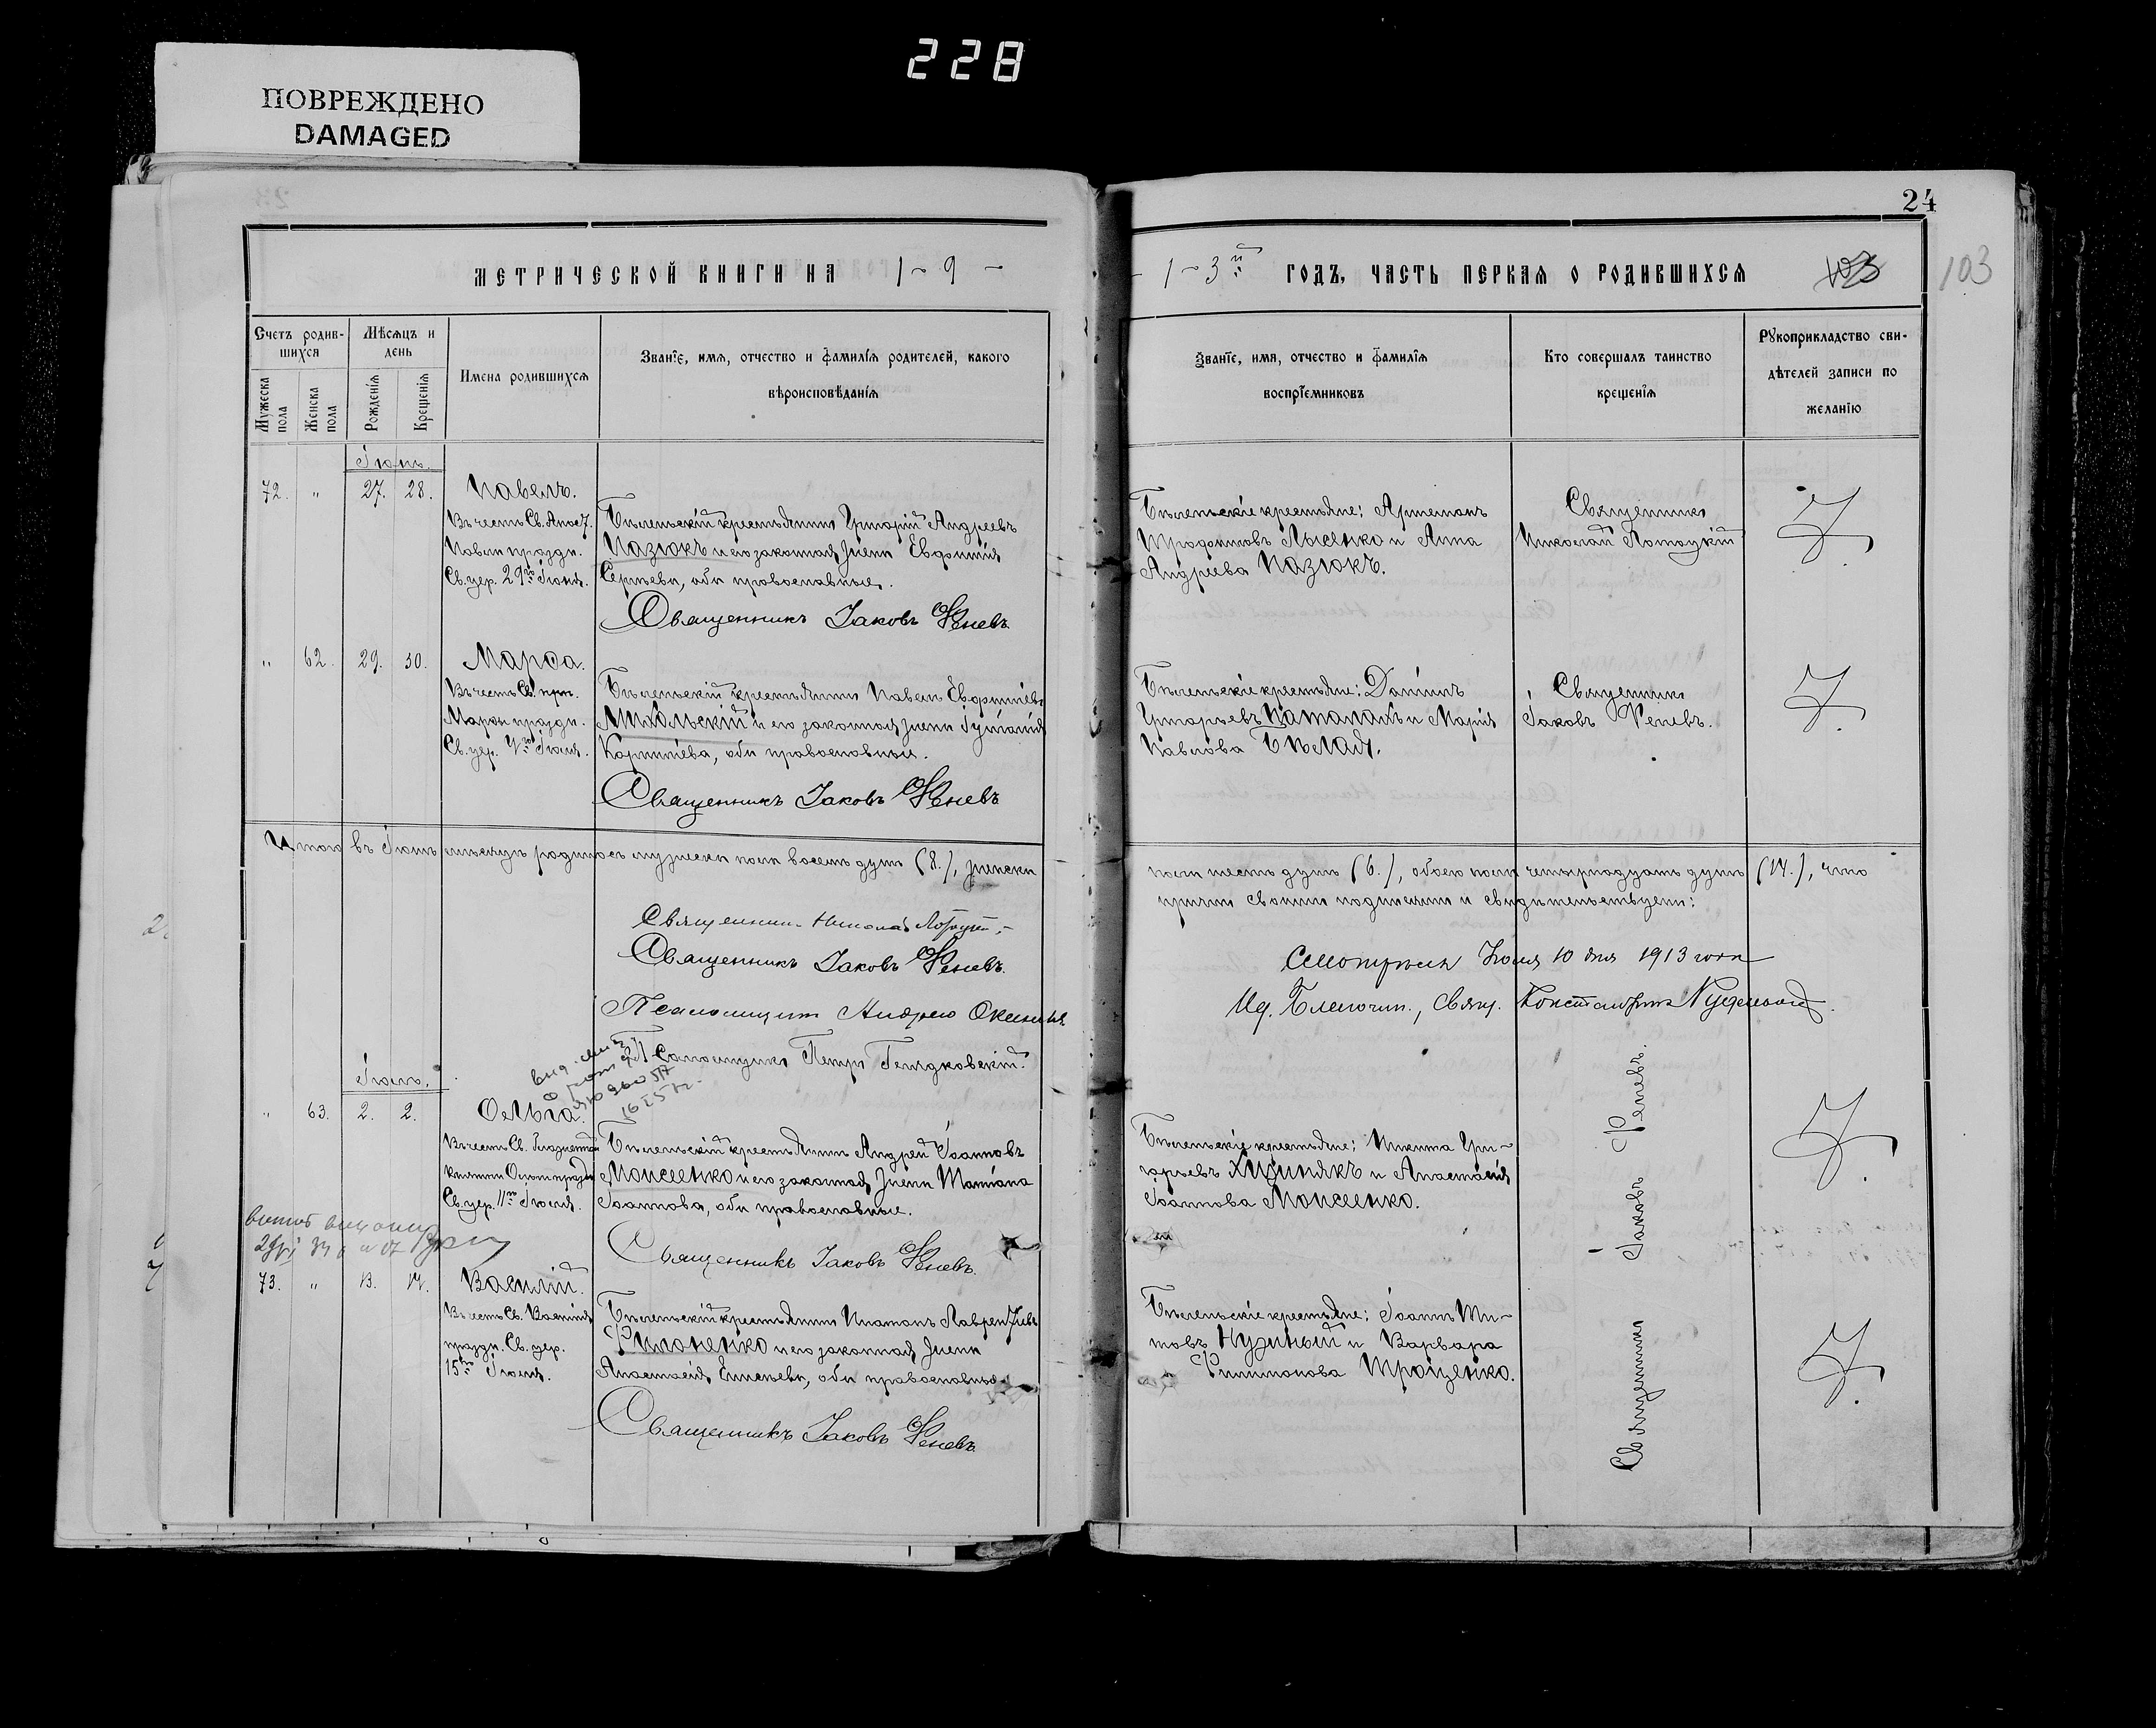 228
ПОВРЕЖДЕНО
DAMAGED
24
МЕТРИЧЕСКОЙ КНИГИ НА 1-9-
-1-3й ГОДЪ, ЧАСТЬ ПЕРВАЯ О РОДИВШИХСЯ
103
Счетъ родив-
шихся
Мужеска пола
Женска пола
Мѣсяцъ и
день
Рожденія
Крещенія
Имена родившихся
Званіе, имя, отчество и фамилія родителей, какого
вѣроисповѣданія
Званіе, имя, отчество и фамилія
воспріемниковъ
Кто совершалъ таинство
крещенія
Рукоприкладство сви-
дѣтелей записи по
желанію
Іюнь.
72. " 27. 28. Павелъ.
Въ честь Св. Апост.
Павла праздн.
Св. цер. 29го Іюня.
крестьянинъ Григорій Андреевъ
Пазюкъ и его законная жена Евдокія
Сергѣева, оба православные.
Священникъ Іаковъ Феневъ.
крестьяне: Артемонъ
Лысенко и Анна
Андреева Пазюкъ.
Священникъ
Николай Лотоцкій
" 62. 29. 30. Марѳа.
Въ честь Св. прп.
Марѳы праздн.
Св. цер. 4го Іюля.
крестьянинъ Павелъ Евфиміевъ
и его законная жена
оба православные.
Священникъ Іаковъ Феневъ
крестьяне: Даніилъ
Григорьевъ и Марія
Павлова Бѣлая.
Священникъ
Іаковъ Феневъ.
Итого въ Іюнѣ мѣсяцѣ родилось мужеска пола восемь душъ (8.), женска
пола шесть душъ (6.), обоего пола четырнадцать душъ (14.), что
причтъ своими подписями и свидѣтельствуетъ:
Священникъ Николай Лотоцкій
Священникъ Іаковъ Феневъ.
Псаломщикъ Андрей
Псаломщикъ Петръ
Смотрѣлъ Іюля 10 дня 1913 года
Благочин., Свящ. Константинъ
Іюль.
" 63. 2. 2. Ольга.
Въ честь Св.
княгини Ольги праздн.
Св. цер. 11го Іюля.
крестьянинъ Андрей Іоанновъ
Моисеенко и его законная жена Татіана
Іоаннова, оба православные.
Священникъ Іаковъ Феневъ.
крестьяне: Никита Гри-
горьевъ и Анастасія
Іоаннова Моисеенко.
73. " 13. 14. Василій.
Въ честь Св. Василія
праздн. Св. цер.
15го Іюля.
крестьянинъ Платонъ Лаврентіевъ
Филоненко и его законная жена
Анастасія оба православные
Священникъ Іаковъ Феневъ.
крестьяне: Іоаннъ Ти-
товъ Нужный и Варвара
Филимонова Троценко.
Священникъ Іаковъ Феневъ.